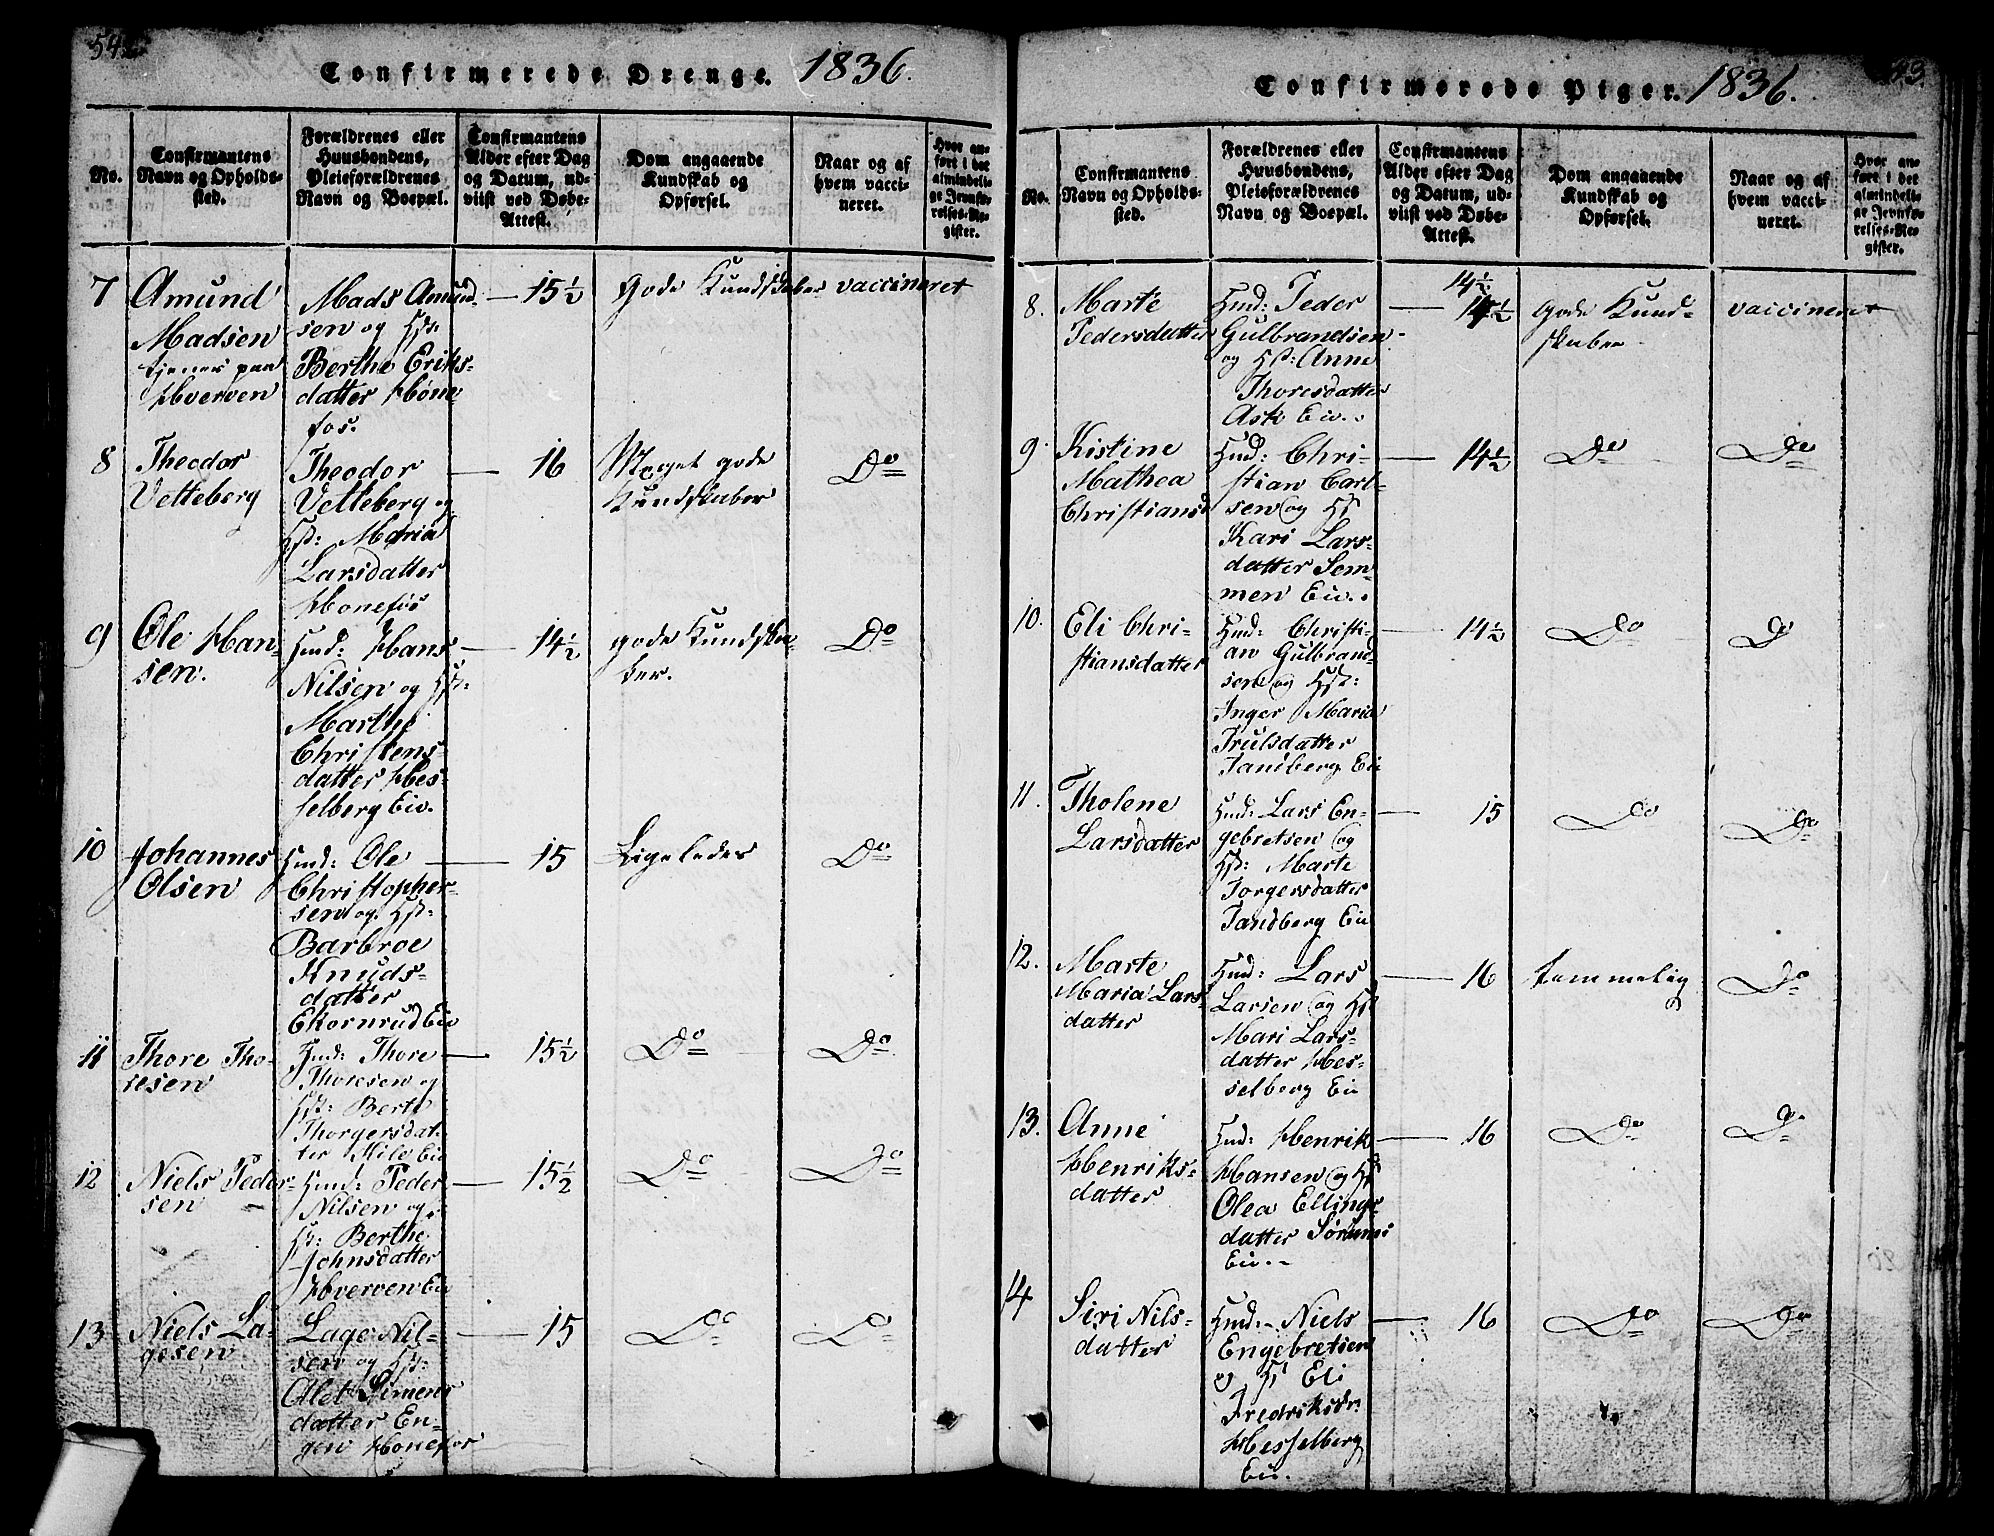 54
Confirmerede Drenge. 1836.
No.
Confirmantens
Navn og Opholds-
sted.
Forældrenes eller
Huusbondens,
Pleieforældrenes
Navn og Boepæl.
Confirmantens
Alder efter Dag
og Datum, ud-
viist ved Døbe-
Attest.
Dom angaaende
Kundskab og
Opførsel.
Naar og af
hvem vacci-
neret.
Hvor an-
ført i det
almindeli-
ge Jevnfø-
relses-Re-
gister.
7
Amund
Madsen
tjener paa
Hverven
Mads Amund-
sen og Hst:
Berthe Eriks-
datter Høne-
fos.
15 1/2
gode Kundskaber
vaccineret
8
Theodor
Vetteberg
Theodor
Vetteberg og
Hst: Maria
Larsdatter
Honefos
16
Meget gode
Kundskaber
Do
9
Ole Han-
sen.
Hmd: Hans
Nilsen og Hst:
Marthe
Christens-
datter Hes-
selberg Eie.
14 1/2
gode Kundska-
ber.
Do
10
Johannes
Olsen
Hmd: Ole
Christopher-
sen og Hst:
Barbroe
Knuds-
datter
Ekornrud Eie
15
Ligeledes
Do
11
Thore Tho-
resen
Hmd: Thore
Thoresen og
Hst: Berte
Thorgersdat-
ter Hile Eie
15 1/2
Do
Do
12
Niels Peder-
sen
Hmd: Peder
Nilsen og
Hst: Berthe
Johnsdatter
Hverven Eie
15 1/2
Do
Do
13
Niels La-
gesen
Lage Nil-
sen og Hst:
Alet Simens
datter En-
gen Honefos
15
Do
Do
43
Confirmerede Piger. 1836.
No.
Confirmantens
Navn og Opholds-
sted.
Forældrenes eller
Huusbondens,
Pleieforældrenes
Navn og Boepæl.
Confirmantens
Alder efter Dag
og Datum, ud-
viist ved Døbe-
Attest.
Dom angaaende
Kundskab og
Opførsel.
Naar og af
hvem vacci-
neret.
Hvor an-
ført i det
almindeli-
ge Jevnfø-
relses-Re-
gister.
8.
Marte
Pedersdatter
Hmd: Peder
Gulbrandsen
og Hst: Anne
Thoresdatter
Ask Eie.
14 1/2
14 1/2
gode Kund-
skaber
vaccineret
9.
Kistine
Mathea
Christiansd
Hmd: Chri-
stian Carl-
sen og Hst
Kari Lars-
datter Som-
men Eie.
14 1/2
Do
Do
10.
Eli Chri-
stiansdatter
Hmd: Christi-
an Gulbrand-
sen og Hst:
Inger Maria
Trulsdatter
Tandberg Eie
14 1/2
Do
Do
11.
Tholene
Larsdatter
Hmd: Lars En-
gebretsen og
Hst: Marte
Torgersdatter
Tandberg Eie
15
Do
Do
12.
Marte
Maria Lars-
datter
Hmd: Lars
Larsen og Hst
Mari Lars-
datter Hes-
selberg Eie
16
temmelig
Do
13.
Anne
Henriks-
datter
Hmd: Henrik
Hansen og Hst
Olea Ellings-
datter Sørum
Eie.
16
Do
Do
14
Siri Nils-
datter
Hmd: Niels
Engebretsen
og Hst Eli
Fredriksdr:
Hesselberg
Eie.
16
Do
Do